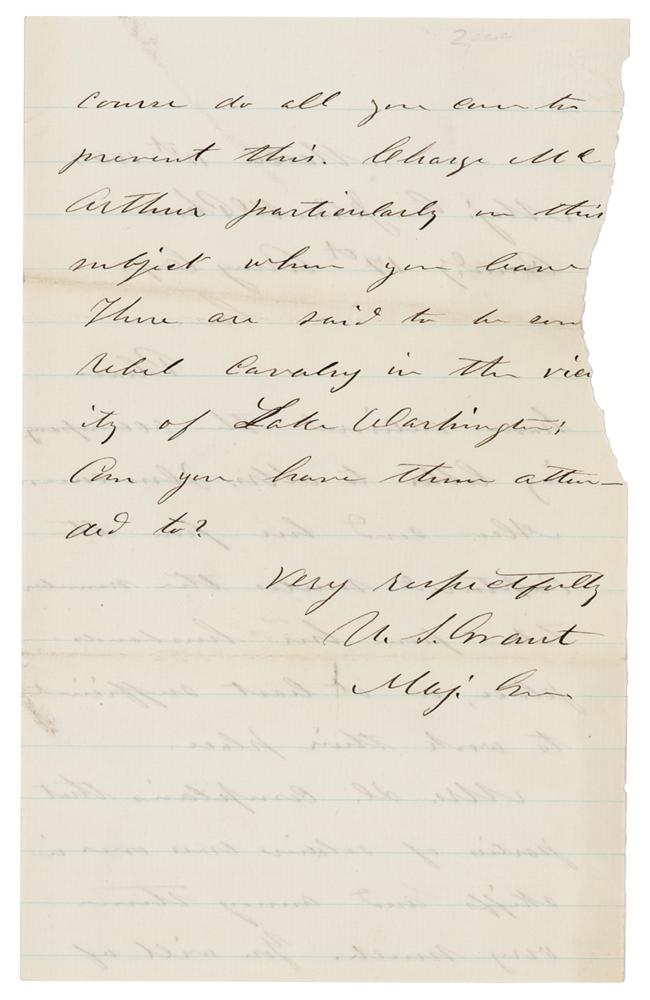 course do all you can to
prevent this. Charge Mc
Arthur particularly on this
subject when you leave
There are said to be som
rebel cavalry in the vici
ity of Lake Washington;
Can you have them atten–
ded to?
Very respectfully
U. S. Grant
Maj. Gen.